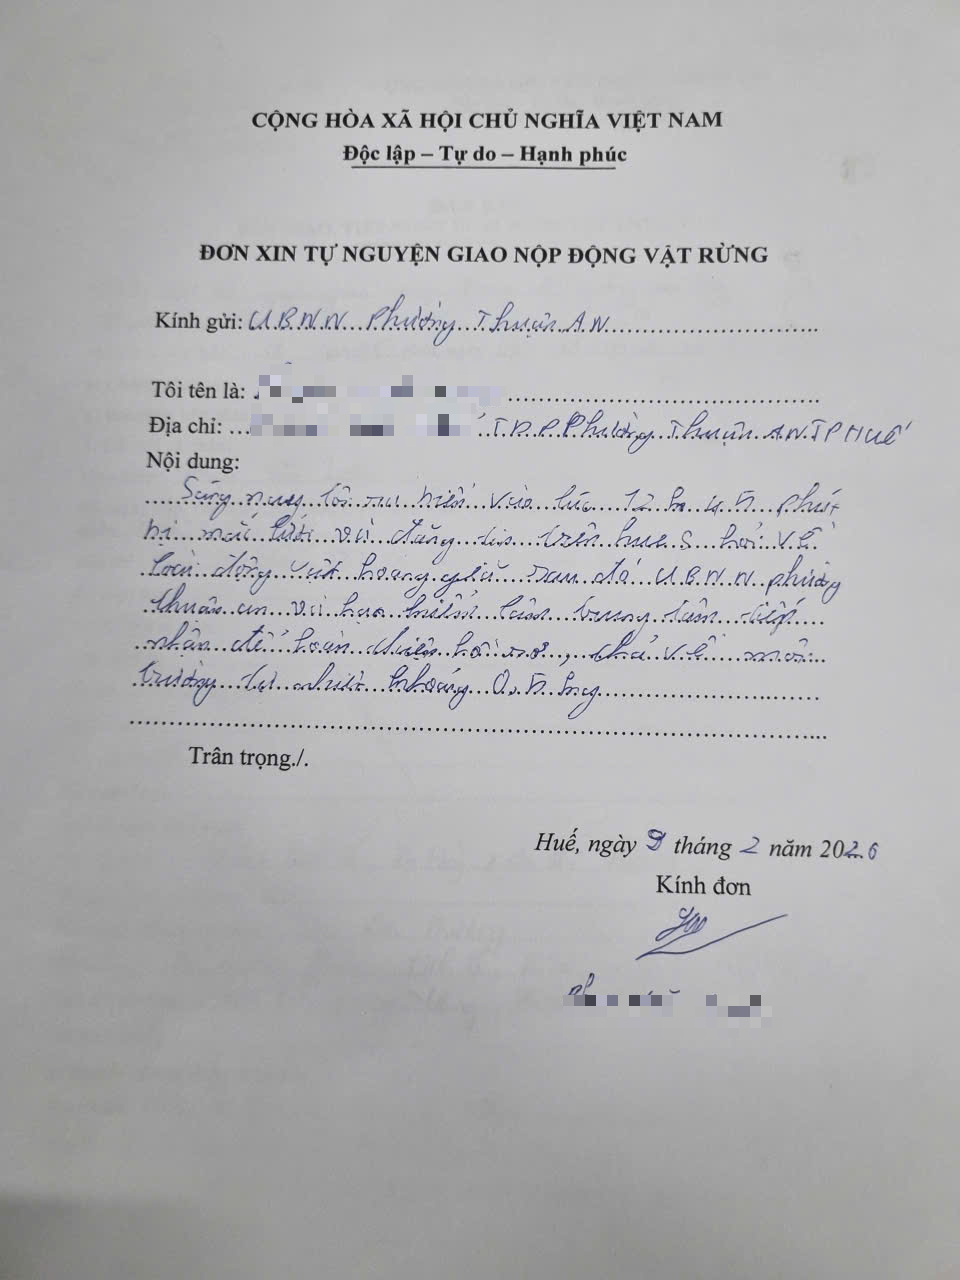 CỘNG HÒA XÃ HỘI CHỦ NGHĨA VIỆT NAM
Độc lập – Tự do – Hạnh phúc
ĐƠN XIN TỰ NGUYỆN GIAO NỘP ĐỘNG VẬT RỪNG
Kính gửi: U.B.N.N Phường Thuận A.N
Tôi tên là:
Địa chỉ: T.D.P Phường Thuận A.N TP HUẾ
Nội dung:
Sáng nay tôi vào lúc 12 h 45 phút
bị mắc lưới và đăng tin trên hue S hỏi về
loài động vật hoang giã sau đó U.B.N.N phường
thuận an và hạt kiểm lâm trung tâm tiếp
nhận để hoàn thiện hồ sơ, thả về môi
trường tự nhiên khoảng 0,5 kg
Trân trọng./.
Huế, ngày 9 tháng 2 năm 2026
Kính đơn